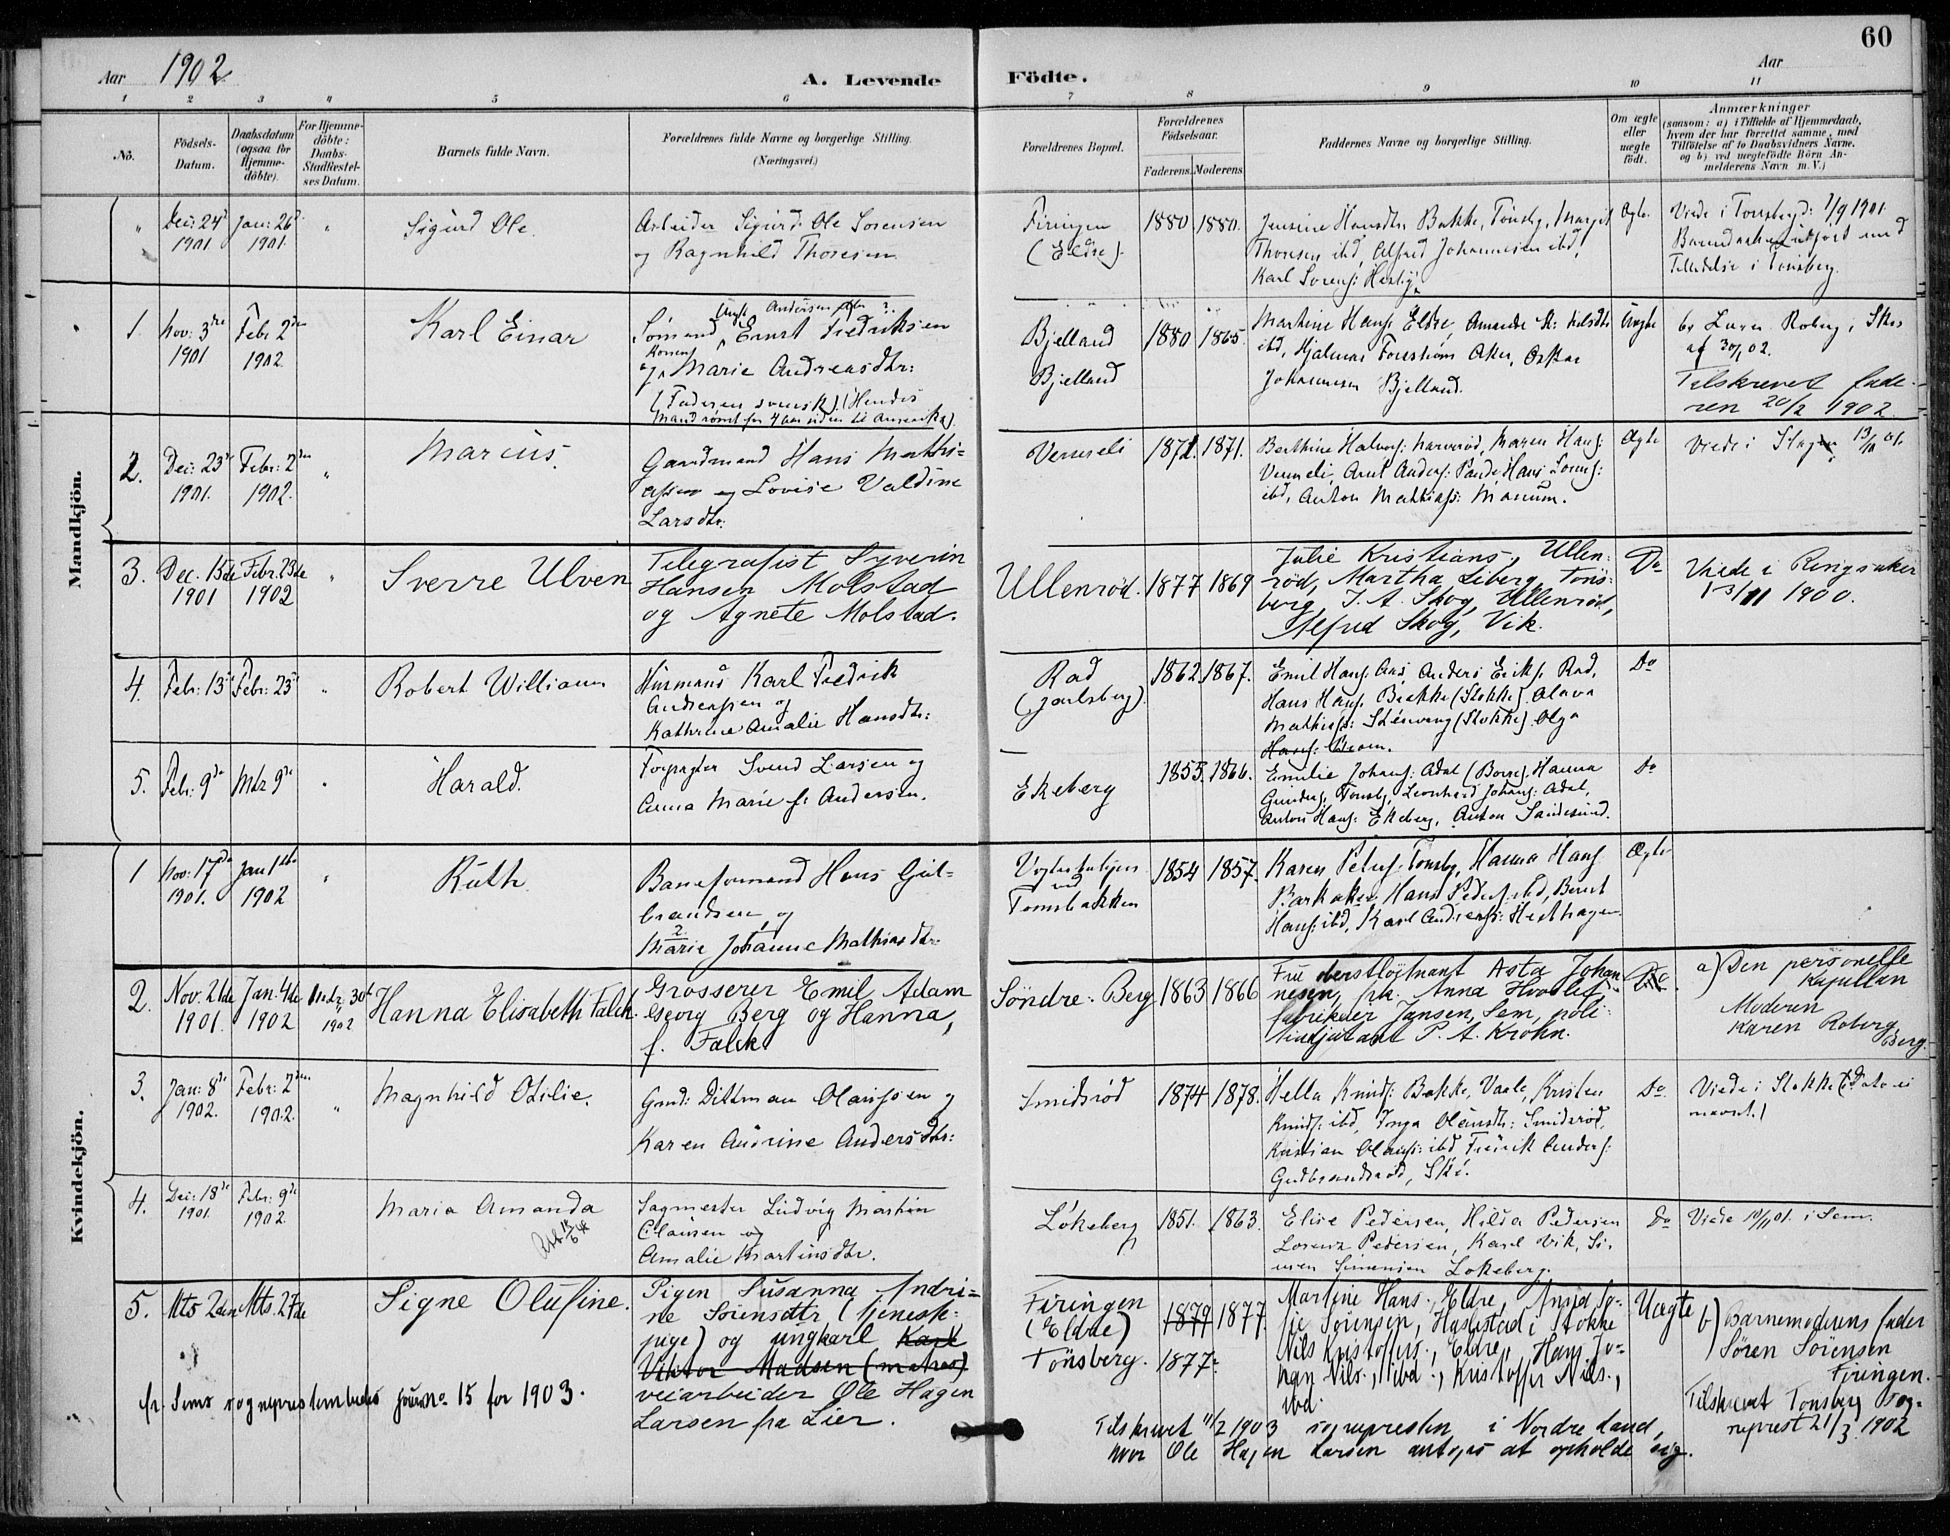 60
Aar 1902
A. Levende
Födte.
Aar
1 2 3 4 5 6 7 8 9 10 11
No.
Födsels-
Datum.
Daabsdatum
(ogsaa for
Hjemme-
döbte).
For Hjemme-
döbte:
Daabs-
Stadfæstel-
ses Datum.
Barnets fulde Navn.
Forældrenes fulde Navne og borgerlige Stilling.
(Næringsvei.)
Forældrenes Bopæl.
Forældrenes
Födselsaar.
Faderens. Moderens.
Faddernes Navne og borgerlige Stilling.
Om ægte
eller
uægte
födt.
Anmærkninger
(saasom: a) i Tilfælde af Hjemmedaab,
hvem der har forrettet samme, med
Tilföielse af to Daabsvidners Navne.
og b) ved uægtefödte Börn An-
melderens Navn m. V.)
Mandkjön.
" Dec: 24d 1901 Jan: 26d 1901. "
Sigurd Ole.
Arbeider Sigurd Ole Sorensen
og Ragnhild Thoresen
Firingen
(Eldre).
1880 1880.
Jensine Hansdtr. Bakke, Tönsbg, Margit
Thoresen ibd, Alfred Johannesen ibd,
Karl Sorens:
Ægte.
Viede i Tonsberg d: 7/9 1901
Tilladelse i Tonsberg.
1. Nov: 3die 1901 Febr 2den 1902.
Karl Einar
Sömand, Ernst Fredriksen
Konen
og Marie Andreasdtr:
(Faderen svensk) (Hendes
Mand römt for 4 aar siden til Amerika).
Bjelland
Bjelland
1880 1865.
Martine Hans: Eldre, Amanda
ibd, Hjalmar Aker, Oskar
Johannesen Bjelland.
Uægte
af 30/1 02.
Tilskrevet fade-
ren 20/2 1902
2. Dec: 23de 1901. Febr: 2den 1902. "
Marius.
Gaardmand Hans Mathi-
assen og Lovise Valdine
Larsdtr.
Vennseli
1872. 1871.
Berthine Halvors: Narverød, Maren Hans:
Vennseli, Anders: Hans Sorens:
ibd, Anton Mathias:
Ægte
Viede i Slagen
3. Dec. 15de 1901 Febr. 23de 1902 "
Sverre Ulven
Telegrafist Syverin
Hansen Molstad
og Agnete Molstad.
Ullenröd.
1877 1869
Julie Kristians., Ullen-
röd, Martha Liberg, Töns-
berg, J. A. Skog, Ullenröd,
Alfred Skog, Vik.
Do
Viede i Ringsaker
13/11 1900.
4. Febr: 13de Febr: 23de "
Robert William
Husmand Karl Fredrik
Andreassen og
Kathrine Amalie Hansdtr:
Rad
(Jarlsberg).
1862 1867.
Emil Hans: Aas, Anders Eriks: Rad,
Hans Hans. Bakke (Stokke). Olava
Mathias: (Stokke). Olga
Hans:
Do
5. Febr: 9de Mts 9de "
Harald.
Forpagter Svend Larsen og
Anna Marie f: Andersen.
Ekeberg
1855. 1866.
Emilie Johans: Adal (Borre). Hanna
Tonsbg, Leonhard Johans: Adal,
Anton Hans: Ekeberg, Anton Sandesund.
Do
Kvindekjön.
1 Nov: 17de 1901. Jan 1ste 1902 "
Ruth.
Baneformand Hans Gul-
brandsen og
Marie Johanne Mathiasdtr:
ved
Tomsbakken
1854 1857.
Karen Peters: Tonsbg, Hanna Hans:
Barkaker, Hans Peders: ibd, Bernt
Hans: ibd, Karl Andreas: Hesthagen
Ægte
2. Nov. 21de 1901. Jan. 4de 1902 30te 1902
Hanna Elisabeth Falck.
Grosserer Emil Adam
Georg Berg og Hanna,
f. Falck
Söndre Berg
1863 1866
Fru oberstlöjtnant Asta Johan-
nesen, frk. Anna
fabrikeier Jansen, Sem, poli-
tiadjutant P. A. Krohn.
Do
a) Den personelle
Kapellan
Moderen
Karen Roberg,
Berg.
3. Jan: 8de 1902. Febr: 2den 1902. "
Magnhild Otilie.
Gmd: Dittman Olaussen og
Karen Andrine Andersdtr:
Smidsröd
1874 1878.
Hella Knuds: Bakke, Vaale, Kristen
Knuds: ibd, Inga Olausdtr: Smidsröd,
Kristian Olaus: ibd Fredrik Anders:
Gudbrandsröd,
Do.
Viede i Stokke (Dato ei
nævnt.)
4. Dec: 18de 1901. Febr: 9de 1902.
Maria Amanda
Sagmester Ludvig Martin
Clausen og
Amalie Martinsdtr.
Lökeberg
1851. 1863.
Elise Pedersen, Hilda Pedersen
Lorenz Pedersen, Karl Vik, Si-
men Simensen Lokeberg.
Do
Viede 10/11 01. i Sem.
5. Mts 2den Mts. 27de
Signe Olufine.
Pigen Susanna Andri-
ne Sörensdtr (tjeneste-
pige) og ungkarl Karl
Viktor Madsen (matros)
veiarbeider Ole Hagen
Larsen fra Lier.
Firingen
(Eldre)
Tönsberg.
1879 1877.
1877.
Martine Hans., Eldre, Ansja So-
fie Sörensen, Haslestad i Stokke
Nils Kristoffers., Eldre, Hans Jo-
han Nils., ibd., Kristoffer Nils.,
ibd.
Uægte
b) Barnemoderens fader
Sören Sörensen
Firingen.
Tilskrevet Tonsberg Sog-
neprest 21/3 1902
fr. Sems sogneprestembedes journo. 15 for 1903.
Tilskrevet 11/2 1903 sognepresten i Nordre Land,
hvor Ole Hagen Larsen antages at opholde sig.